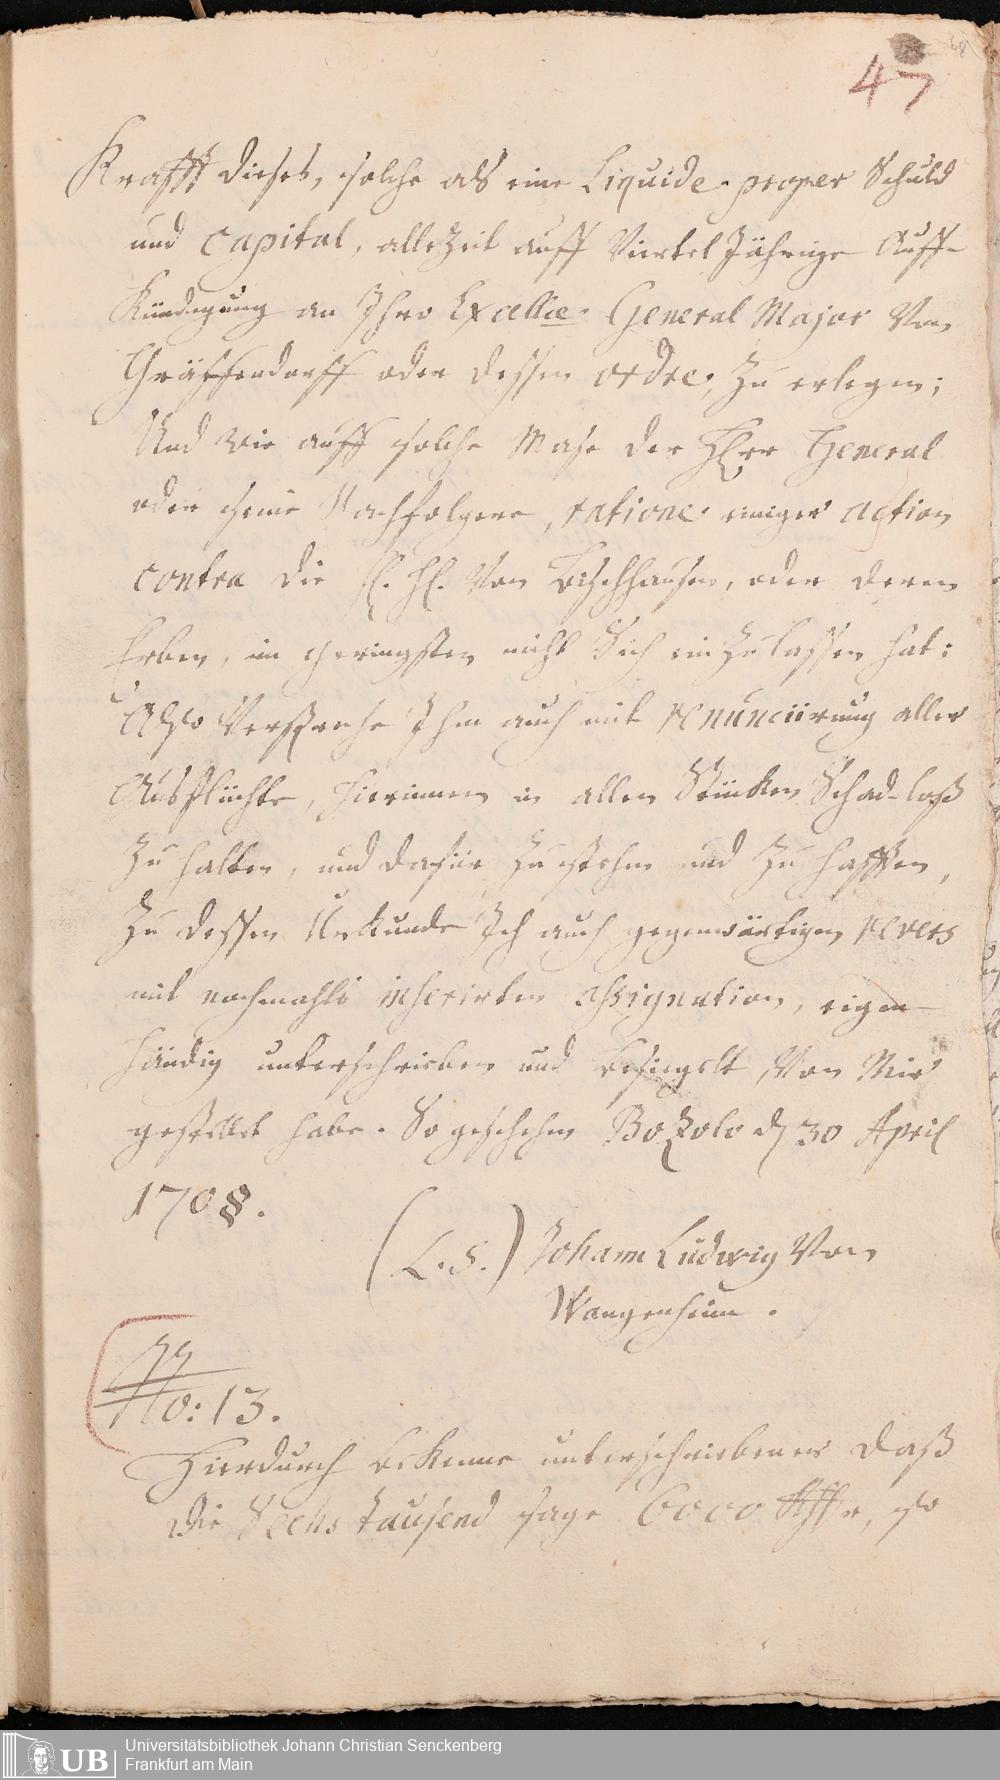 68
47
Krafft dieses, solche als eine Liquide proper Schuld
und Capital, allezeit auff Viertel Jährige Auff-
Kündigung an Ihro Excellce. General Major Von
Gräffendorff oder dessen ordre, zu erlegen;
Und wie auff solche Mase der Herr General
oder seine Nachfolgere, ratione einiger action
contra die H. H. Von Bischhausen, oder deren
Erben, im geringsten nicht Sich einzulassen hat;
Also Verspreche Ihm auch mit renunciirung aller
Ausflüchte, hierinnen in allen Stücken Schad-loß
zu halten, und dafür zu stehen und zu hafften,
Zu dessen Urkunde Ich auch gegenwärtigen revers
mit nochmahls inserirten assignation, eigen-
händig unterschrieben und besiegelt, Von Mir
gestellet habe. So geschehen Bozolo d. 30 April
1708.
(L. S.) Johann Ludwig Von
Wangenheim.
No: 13.
Hierdurch bekenne unterschriebener daß
die Sechs tausend sage 6000 , so
Universitätsbibliothek Johann Christian Senckenberg
UB
Frankfurt am Main